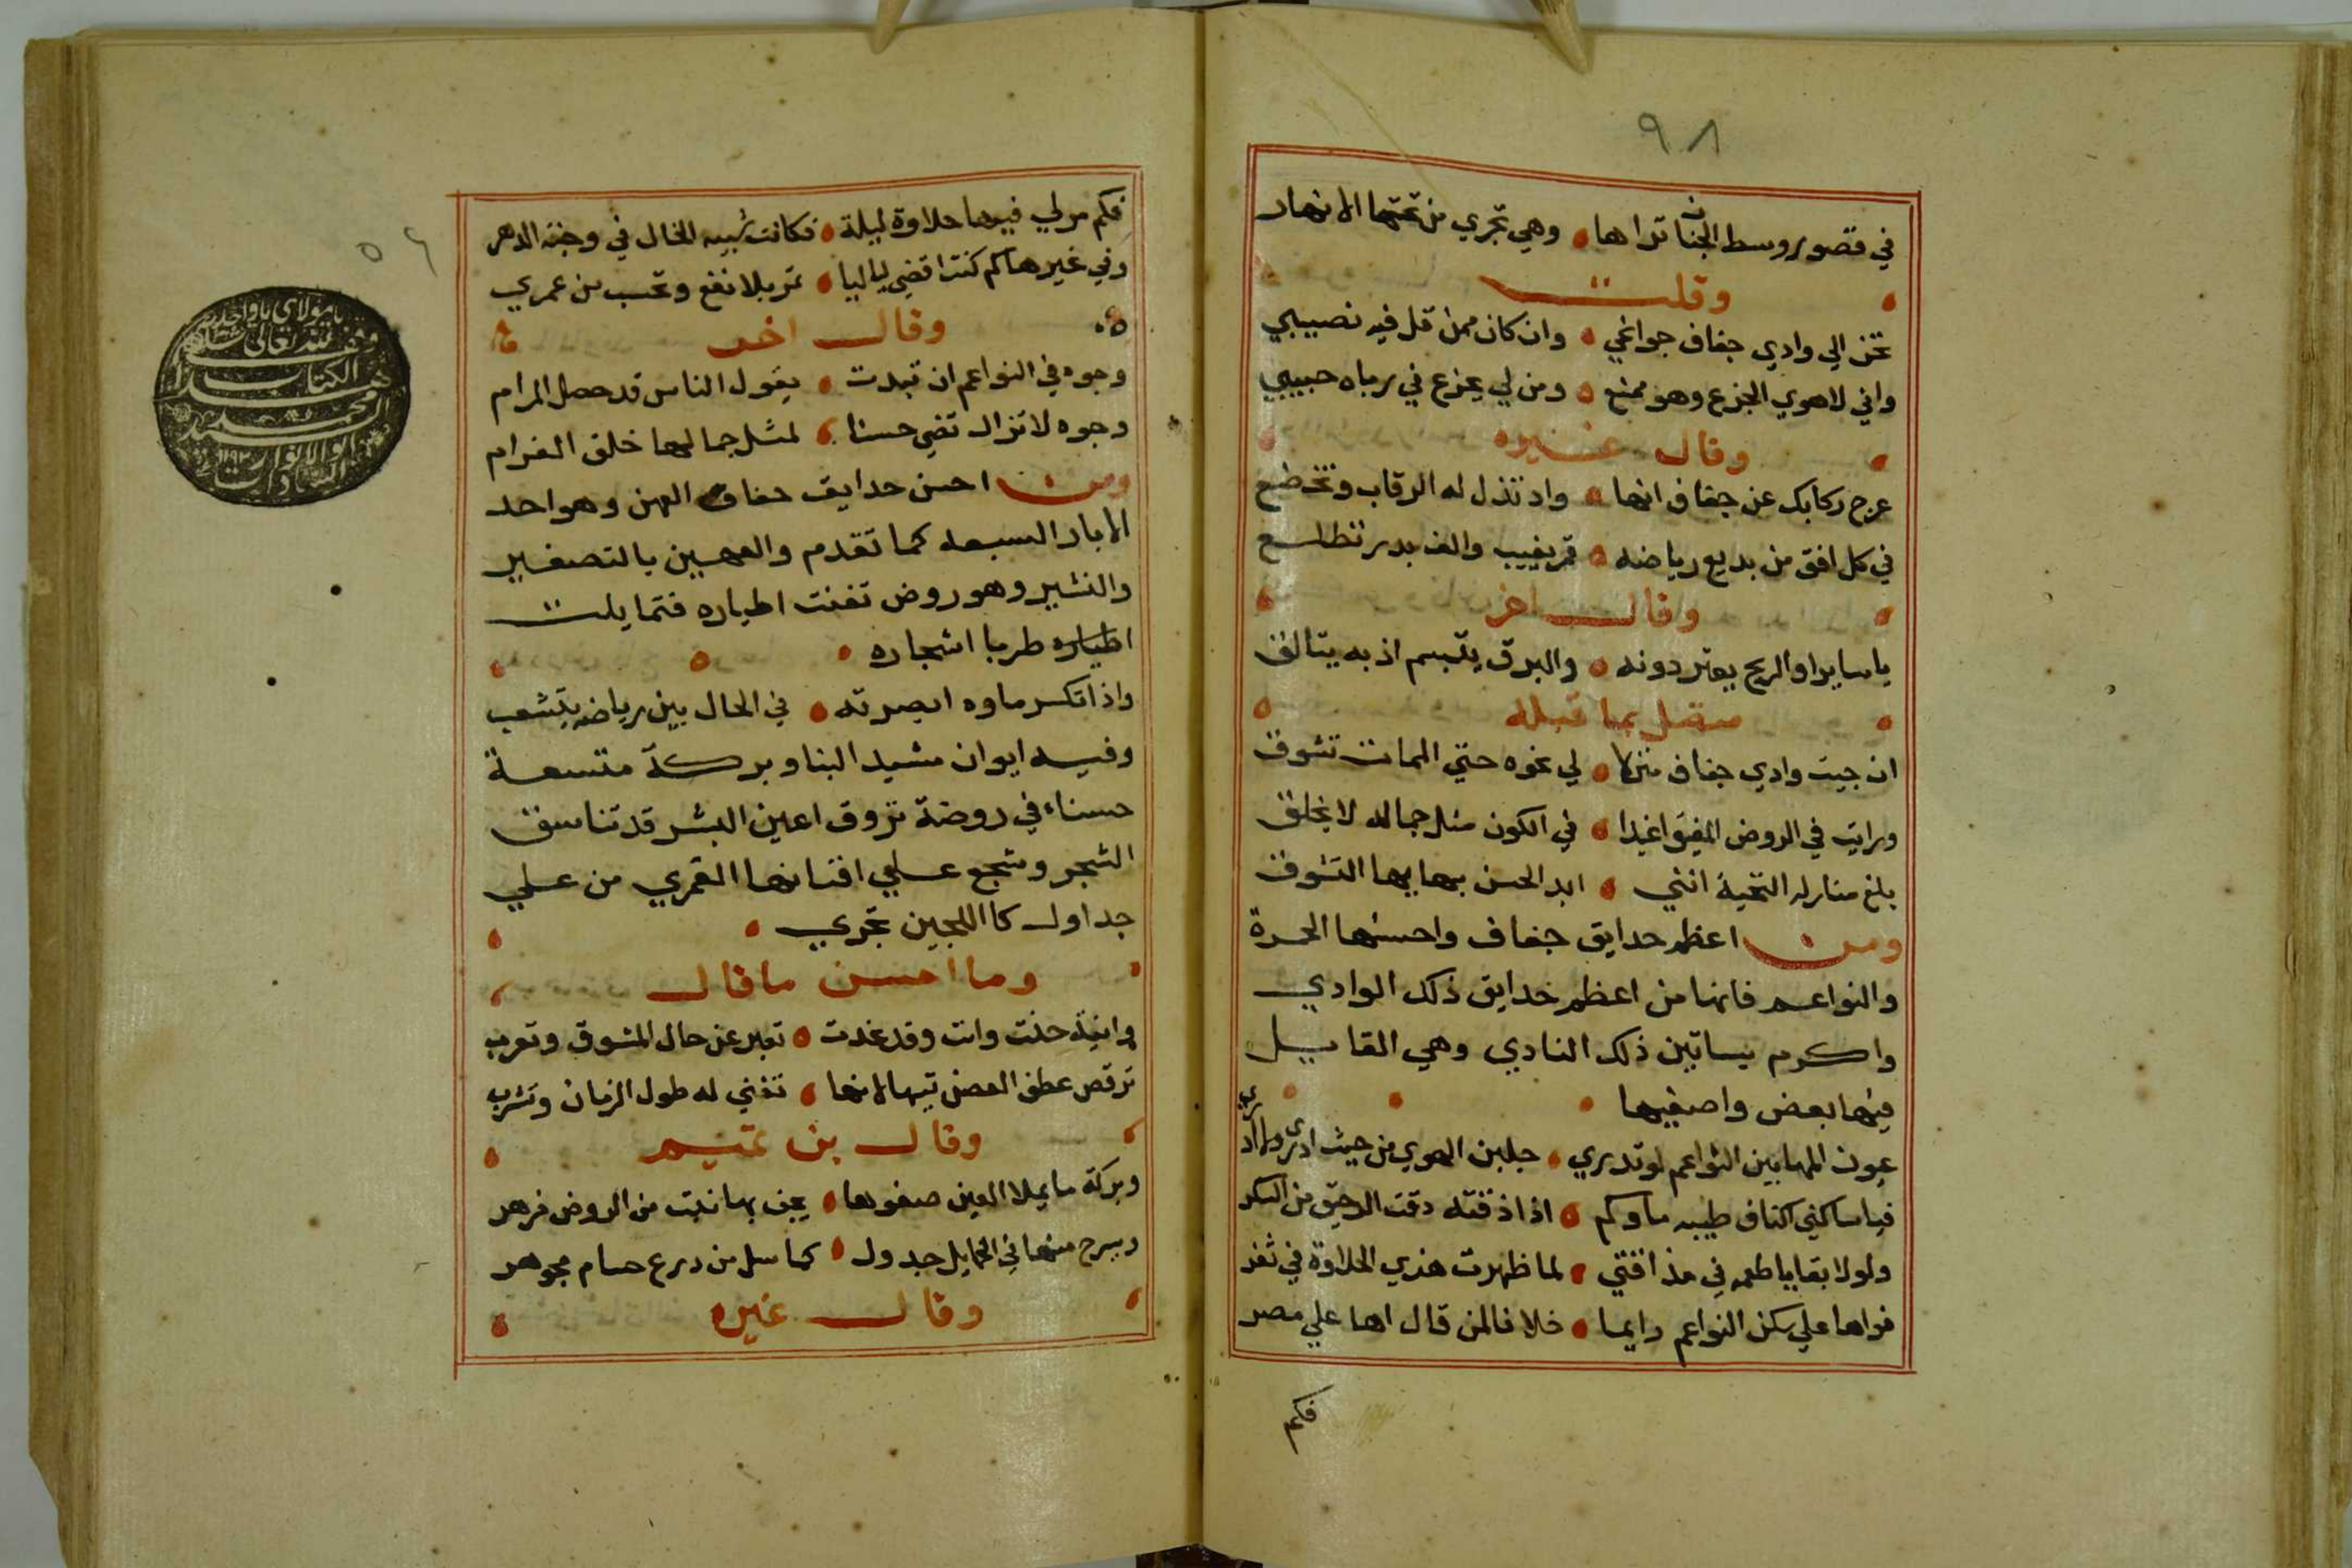 ٩٨
في قصور وسط الجنان تراها وهي تجري من تحتها الانهار
وقلت
تحن الي وادي جفاف جوانحي وان كان ممن قل فيه نصيبي
واني لاهوي الجزع وهو ممنع ومن لي بجزع في رباه حبيبي
وقال غيره
عرج ركابك عن جفاف انها واد تذل له الرقاب وتخضع
في كل افق من بديع رياضه قمر يغيب والف بدر تطلع
وقال اخر
يا سايرا والريح يعثر دونه والبرق يبتسم اذ به يتالق
متصل بما قبله
ان جيت وادي جفاف منزلا لي نحوه حتي الممات تشوق
ورايت في الروض المفيق اغيدا في الكون مثل جماله لا يخلق
بلغ منازله التحية انني ابد الحسن بهايها التشوق
ومن اعظم حدايق جفاف واحسنها الحرة
والنواعم فانها من اعظم حدايق ذلك الوادي
واكرم بساتين ذلك النادي وهي القايل
فيها بعض واصفيها
عيون المها بين النواعم لو تدري جلبن الهوي من حيث ادري ولا ادري
فيا ساكني اكناف طيبه ماوكم اذا ذقته دقت الرحيق من السكر
ولولا بقايا طعمه في مذاقتي لما ظهرت هذي الحلاوة في ثغر
فواها علي سكن النواعم دايما خلافا لمن قال اها علي مصر
فكم
فكم مر لي فيها حلاوة ليلة فكانت شبيه الخال في وجنه الدهر
وفي غيرها كم كنت اقضي لياليا تمر بلا نفع وتحسب من عمري
وقال اخر
وجوه في النواعم ان تبدت يقول الناس قد حصل المرام
وجوه لا تزال تضي حسنا لمثل جمالها خلق الغرام
ومن احسن حدايق جفاف العهن وهو احد
الابار السبعه كما تقدم والعهين بالتصغير
والنشير وهو روض تغنت اطياره فتمايلت
اطياره طربا اشجاره
واذا تكسر ماوه ابصرته في الحال بين رياضه يتشعب
وفيه ايوان مشيد البنا وبركة متسعة
حسناء في روضة تروق اعين البشر قد تناسق
الشجر وشجع علي افنانها القمري من علي
جداول كااللجين تجري
وما احسن ما قال
وانية حنت وانت وقد غدت تعبر عن حال المشوق وتعرب
ترقص عطف الغصن تيها لانها تغني له طول الزمان وتشرب
وقال بن تميم
وبركة ما يملا العين صفوها يحف بها نبت من الروض فرهر
ويسرح منها في الخمايل جدول كما سل من درع حسام مجوهر
وقال غيره
٥٦
يا مولاي يا واحد
وقف لله تعالى
هذا الكتاب